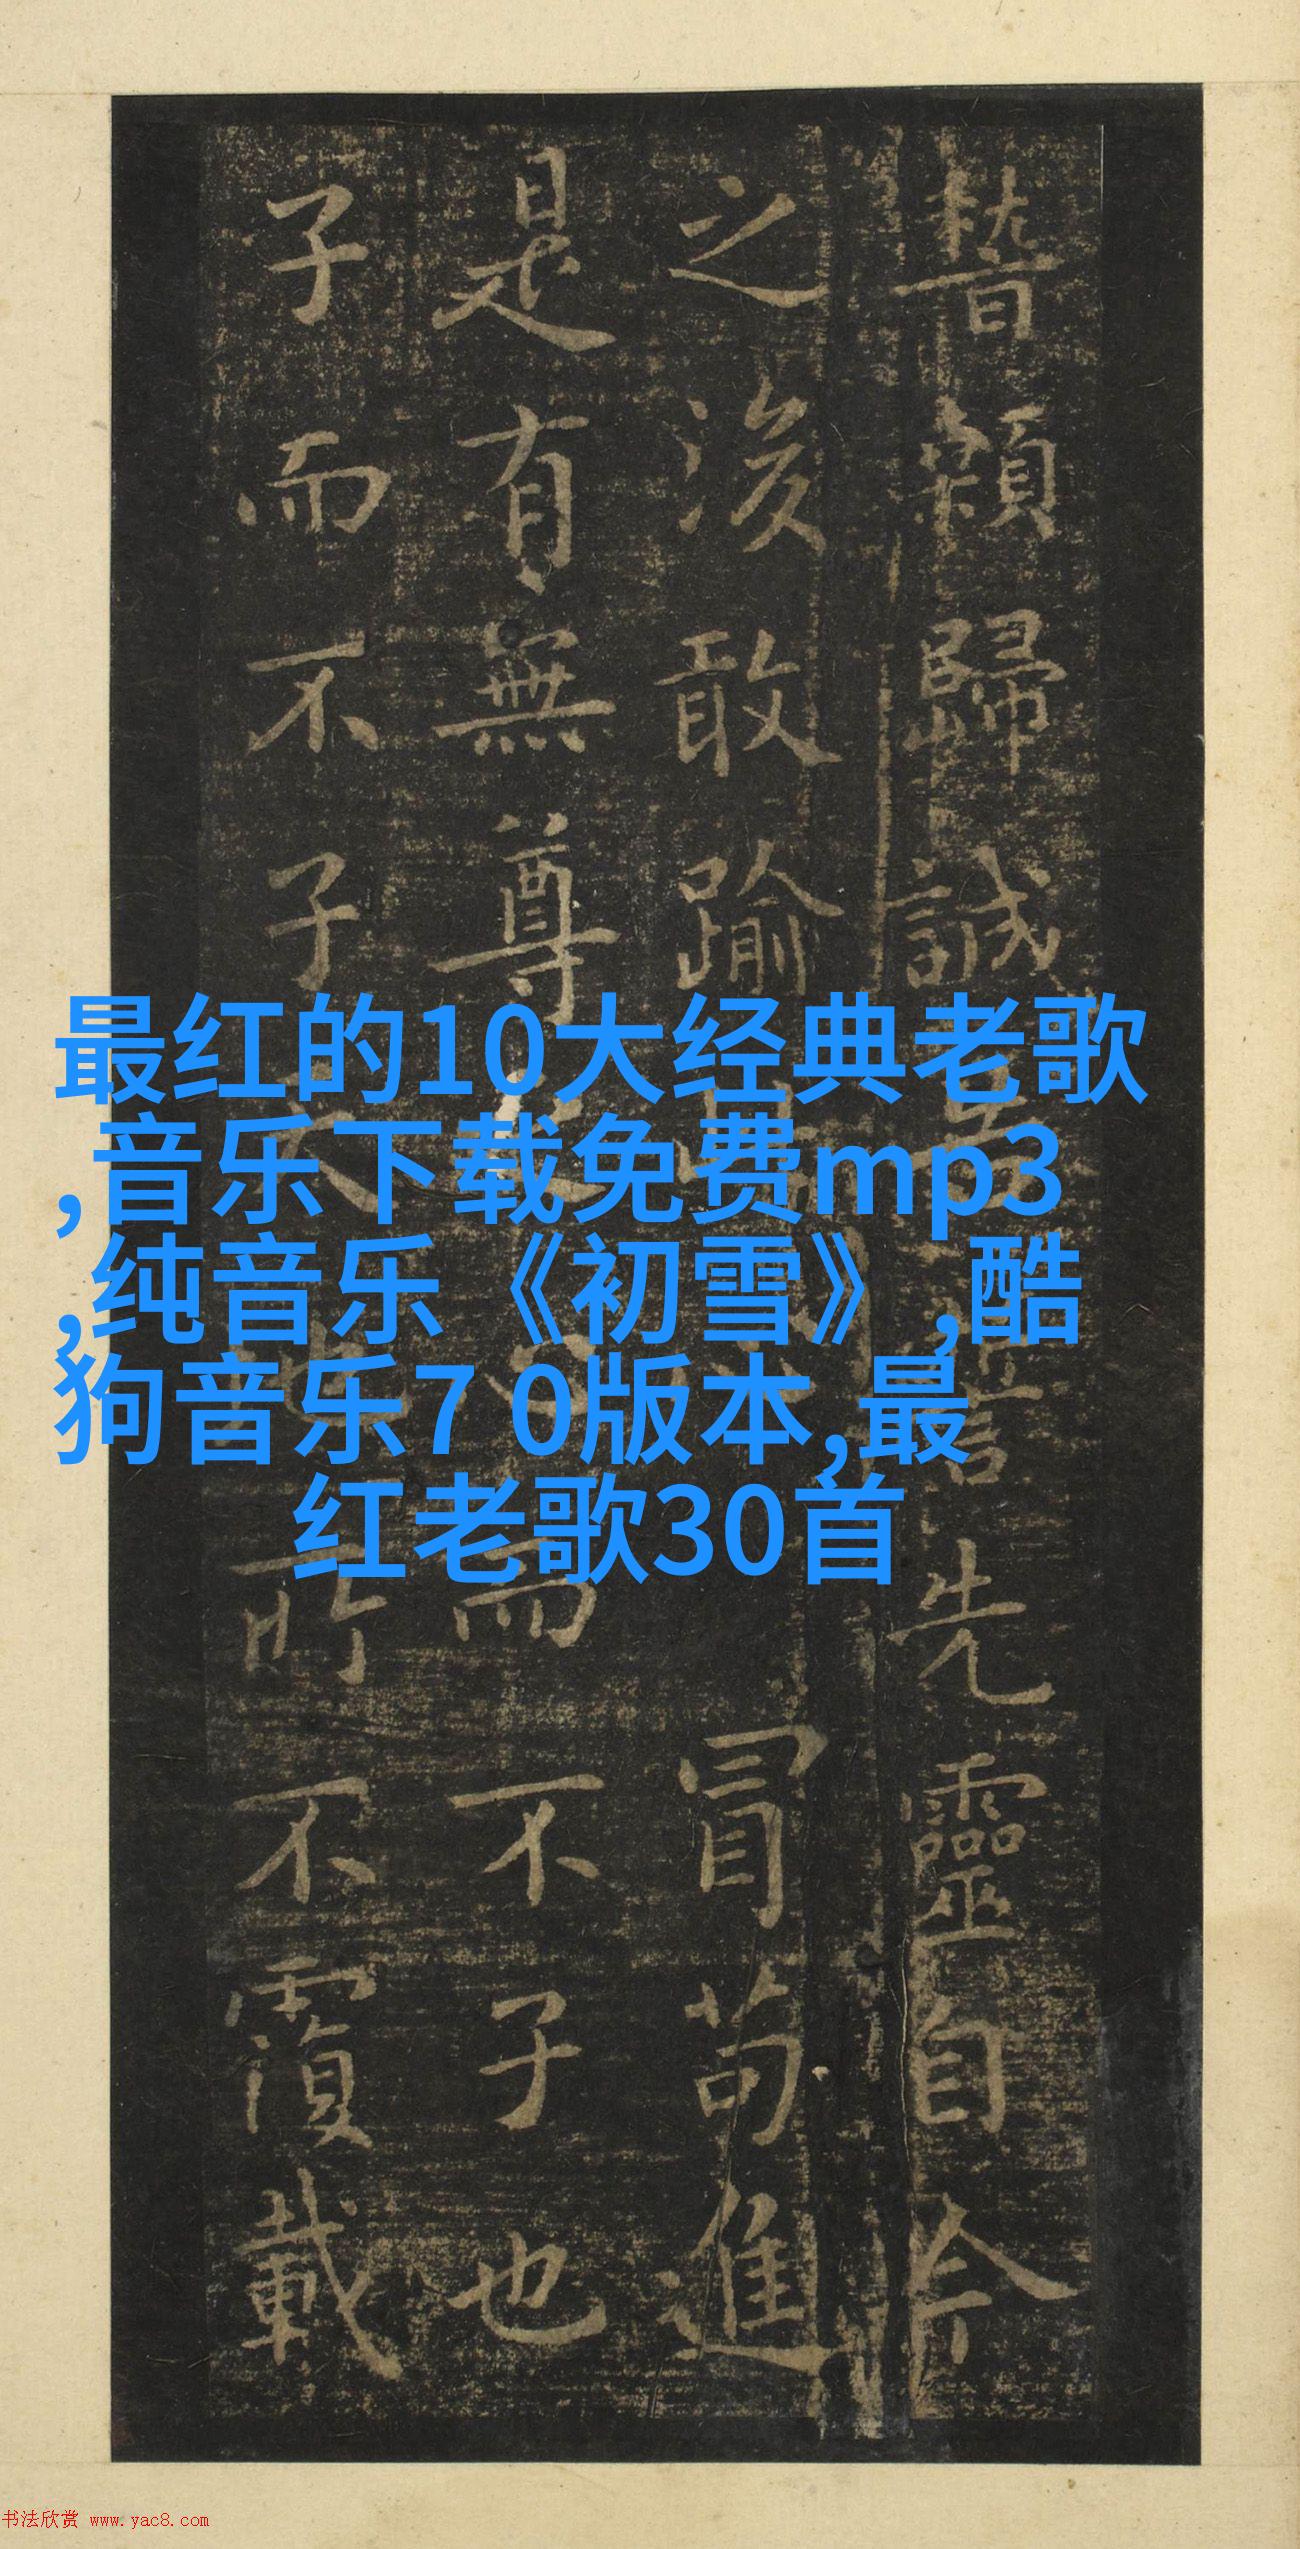 顙歸誠先靈自今
之後敢踰冒苟進
是有無尊而不子也
子而不子所不覆載
最红的10大经典老歌
,音乐下载免费mp3
,纯音乐《初雪》,酷
狗音乐7 0版本,最
红老歌30首
书法欣赏 www.yac8.com